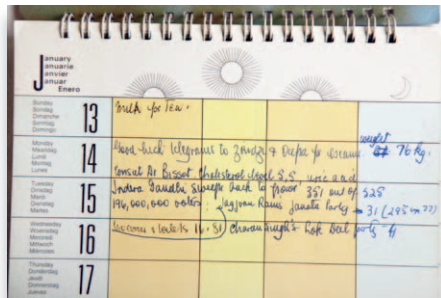 January
Januarie
Janvier
Januar
Enero
Sunday
Sondag
Dimanche
Sonntag
Domingo
13
Milk for tea.
Monday
Maandag
Lundi
Montag
Lunes
14
weight
Good luck telegrams to & Deepa for exams. 76 Kg.
Consult Dr Bissot Cholesterol level 5.5, uric acid
Tuesday
Dinsdag
Mardi
Dienstag
Martes
15
Indira Gandhi sweeps back to power 351 out of 525
196,000,000 voters: Jagjivan Ram's Janata Party 31 (295 in 77)
Wednesday
Woensdag
Mercredi
Mittwoch
Miércoles
16
Charan Singh's Lok Dal party 41
Thursday
Donderdag
Jeudi
Donnerstag
Jueves
17